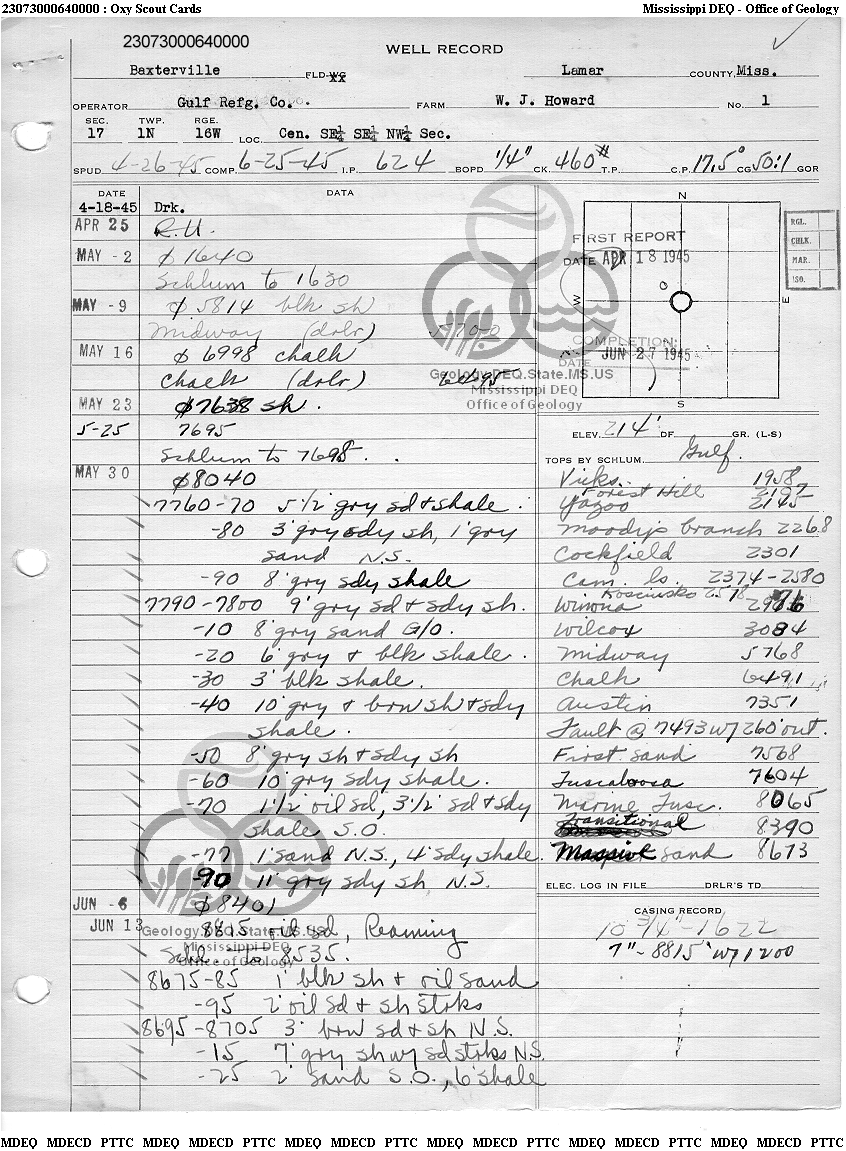 23073000640000 : Oxy Scout Cards Mississippi DEQ - Office of Geology
23073000640000
WELL RECORD
Baxterville FLD-WC XX Lamar COUNTY, Miss.
OPERATOR Gulf Refg. Co. FARM W. J. Howard No. 1
SEC. TWP. RGE.
17 1N 16W LOC. Cen. SE¼ SE¼ NW¼ Sec.
SPUD 4-26-45 COMP. 6-25-45 I.P. 624 BOPD ¼" CK. 460# T.P. C.P. 17.5° CG 50:1 GOR
DATE DATA
4-18-45 Drk.
APR 25 R.U.
MAY -2 ø 1640
Schlum to 1630
MAY -9 ø 5814 blk sh
Midway (drlr) 5700
MAY 16 ø 6998 chalk
Chalk (drlr) 6495
MAY 23 ø7638 sh.
5-25 7695
Schlum to 7698.
MAY 30 ø8040
7760-70 5½' gry sd & shale.
-80 3' gry sdy sh, 1' gry
sand N.S.
-90 8' gry sdy shale
7790-7800 9' gry sd & sdy sh.
-10 8' gry sand G/O.
-20 6' gry & blk shale.
-30 3' blk shale.
-40 10' gry & brn sh & sdy
shale.
-50 8' gry sh & sdy sh
-60 10' gry sdy shale.
-70 1½' oil sd, 3½' sd & sdy
shale S.O.
-77 1' sand N.S., 4' sdy shale.
-90 11' gry sdy sh, N.S.
JUN -6 ø8401
JUN 13 8815 oil sd, Reaming
Schl. to 8535.
8675-85 1' blk sh & oil sand
-95 2' oil sd & sh strks
8695-8705 3' brn sd & sh N.S.
-15 7' gry sh w/ sd strks N.S.
-25 2' sand S.O., 6' shale
N
W
E
S
FIRST REPORT
DATE APR 18 1945
COMPLETION:
DATE JUN 27 1945
RGL.
CHLK.
MAR.
ISO.
Geology.DEQ.State.MS.US
Mississippi DEQ
Office of Geology
ELEV. 214' DF. GR. (L-S)
TOPS BY SCHLUM. Gulf.
Vicks. 1958
Forest Hill 2197
Yazoo 2145
Moodys branch 2268
Cockfield 2301
Cam. ls. 2374-2580
Kosciusko 2578
Winona 2976
Wilcox 3084
Midway 5768
Chalk 6491
Austin 7351
Fault @ 7493 w/ 260' out.
First sand 7568
Tuscaloosa 7604
Marine Tusc. 8065
Transitional 8390
Massive sand 8673
ELEC. LOG IN FILE DRLR'S TD
CASING RECORD
10 3/4" - 1622
7" - 8815' w/ 1200
Geology.DEQ.State.MS.US
Mississippi DEQ
Office of Geology
MDEQ MDECD PTTC MDEQ MDECD PTTC MDEQ MDECD PTTC MDEQ MDECD PTTC MDEQ MDECD PTTC MDEQ MDECD PTTC